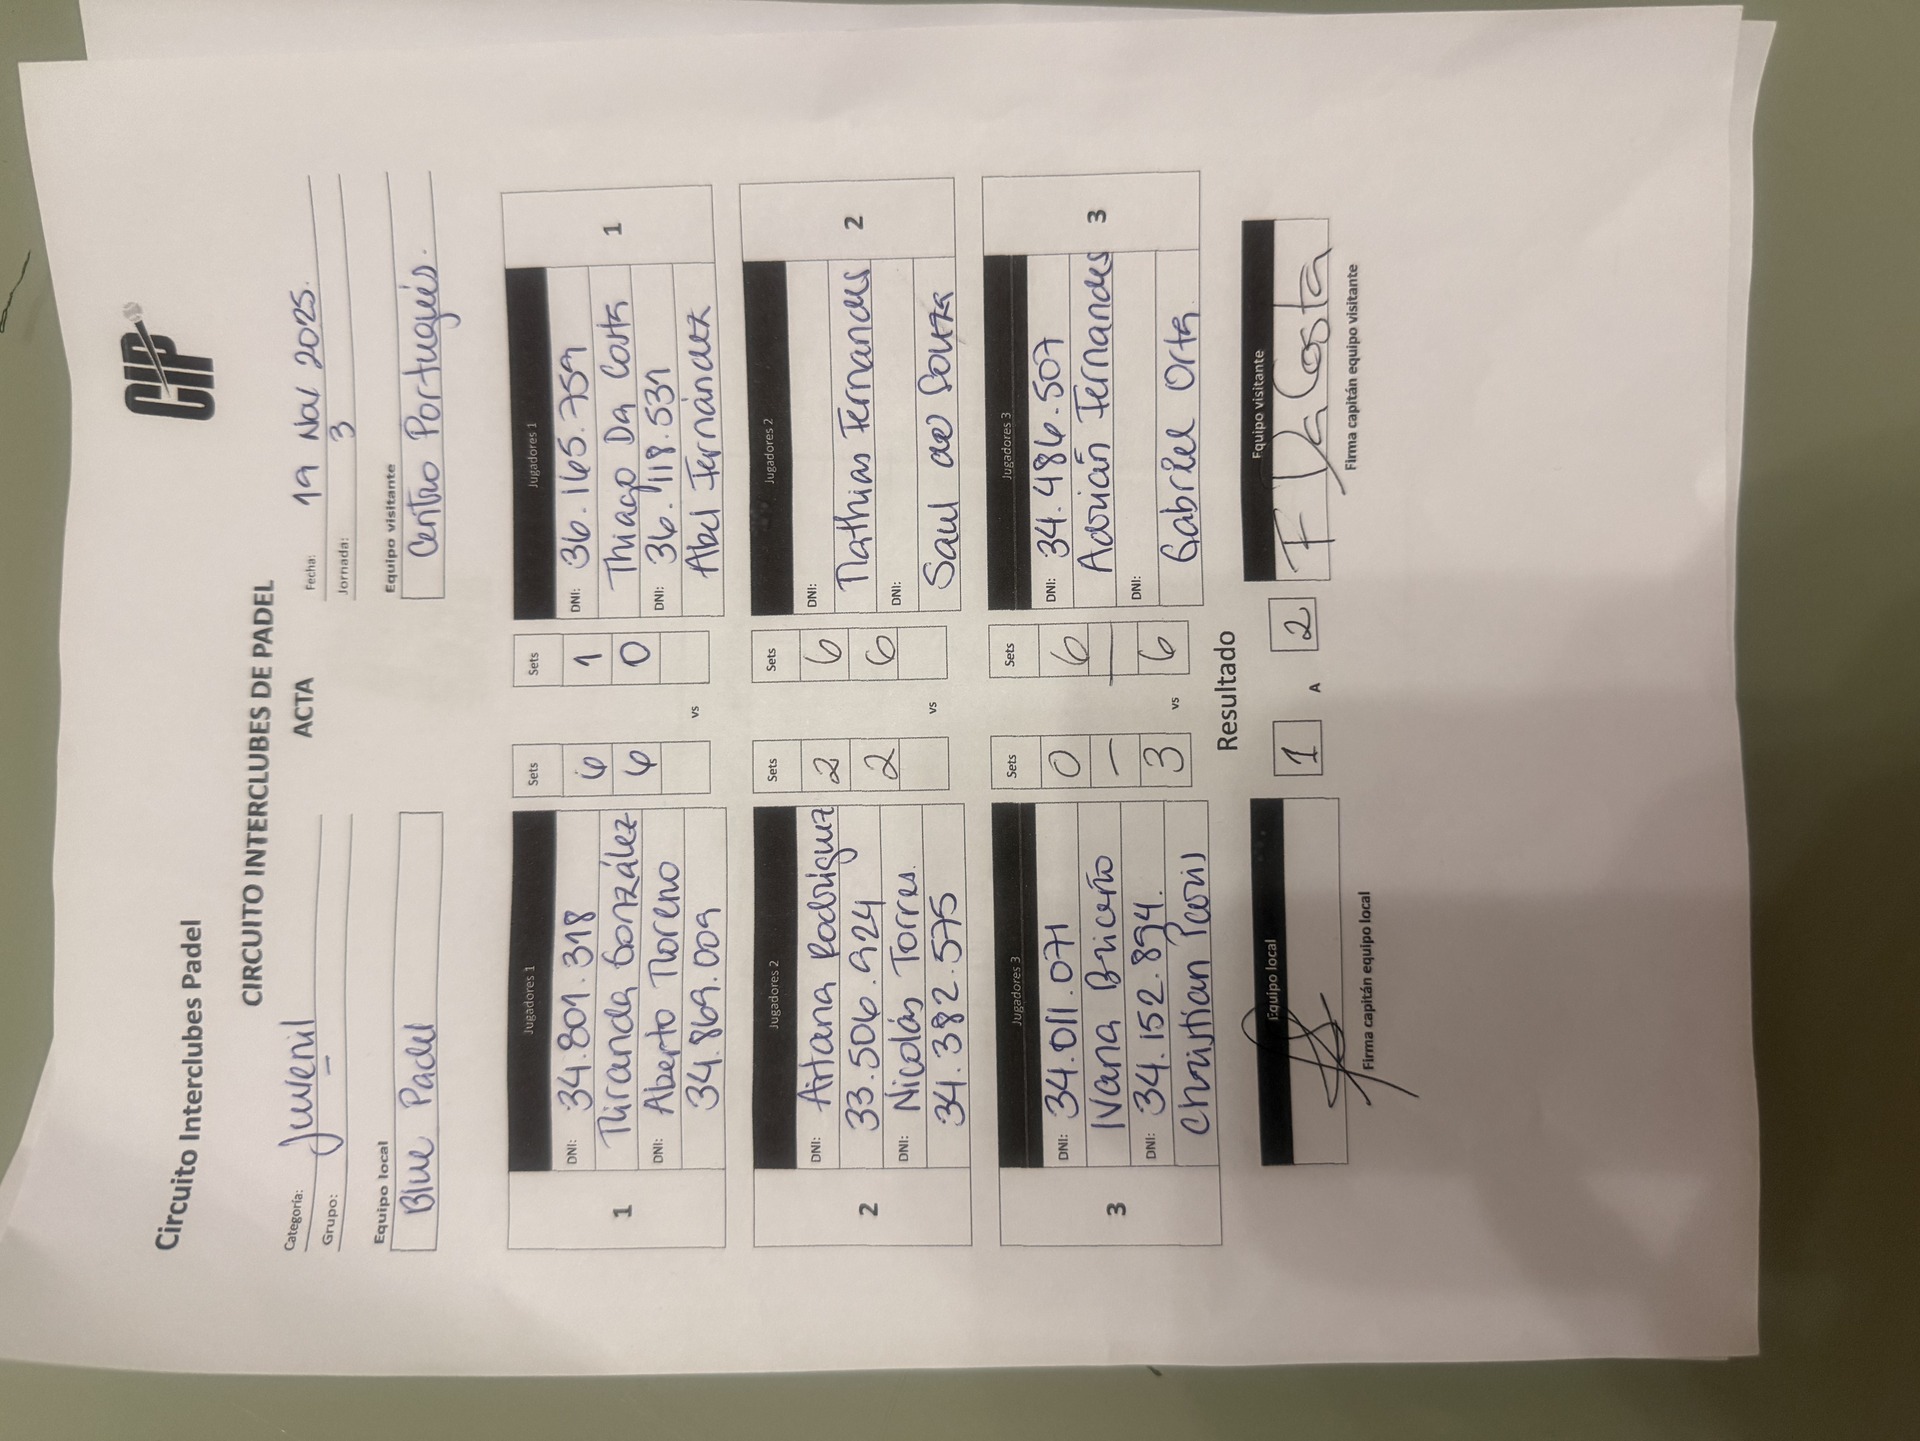 Circuito Interclubes Padel
CIP
CIRCUITO INTERCLUBES DE PADEL
ACTA
Categoría: Juvenil
Fecha: 19 Nov 2025.
Grupo: -
Jornada: 3
Equipo local
Equipo visitante
Blue Padel
Centro Portugués.
Jugadores 1 Sets Sets Jugadores 1
DNI: 34.801.318 6 1 DNI: 36.165.759
Miranda González 6 0 Thiago Da Costa
1 DNI: Aberto Moreno DNI: 36.118.531 1
34.869.009 vs Abel Fernández
Jugadores 2 Sets Sets Jugadores 2
DNI: Aitana Rodríguez 2 6 DNI:
33.506.924 2 6 Mathias Fernandes
2 DNI: Nicolás Torres. DNI: 2
34.382.575 vs Saul de Souza
Jugadores 3 Sets Sets Jugadores 3
DNI: 34.011.071 0 6 DNI: 34.486.507
Ivana Briceño - - Adrián Fernandes
3 DNI: 34.152.894. 3 6 DNI: 3
Christian vs Gabriel Orta
Resultado
Equipo local 1 A 2 Equipo visitante
F Da Costa
Firma capitán equipo local
Firma capitán equipo visitante